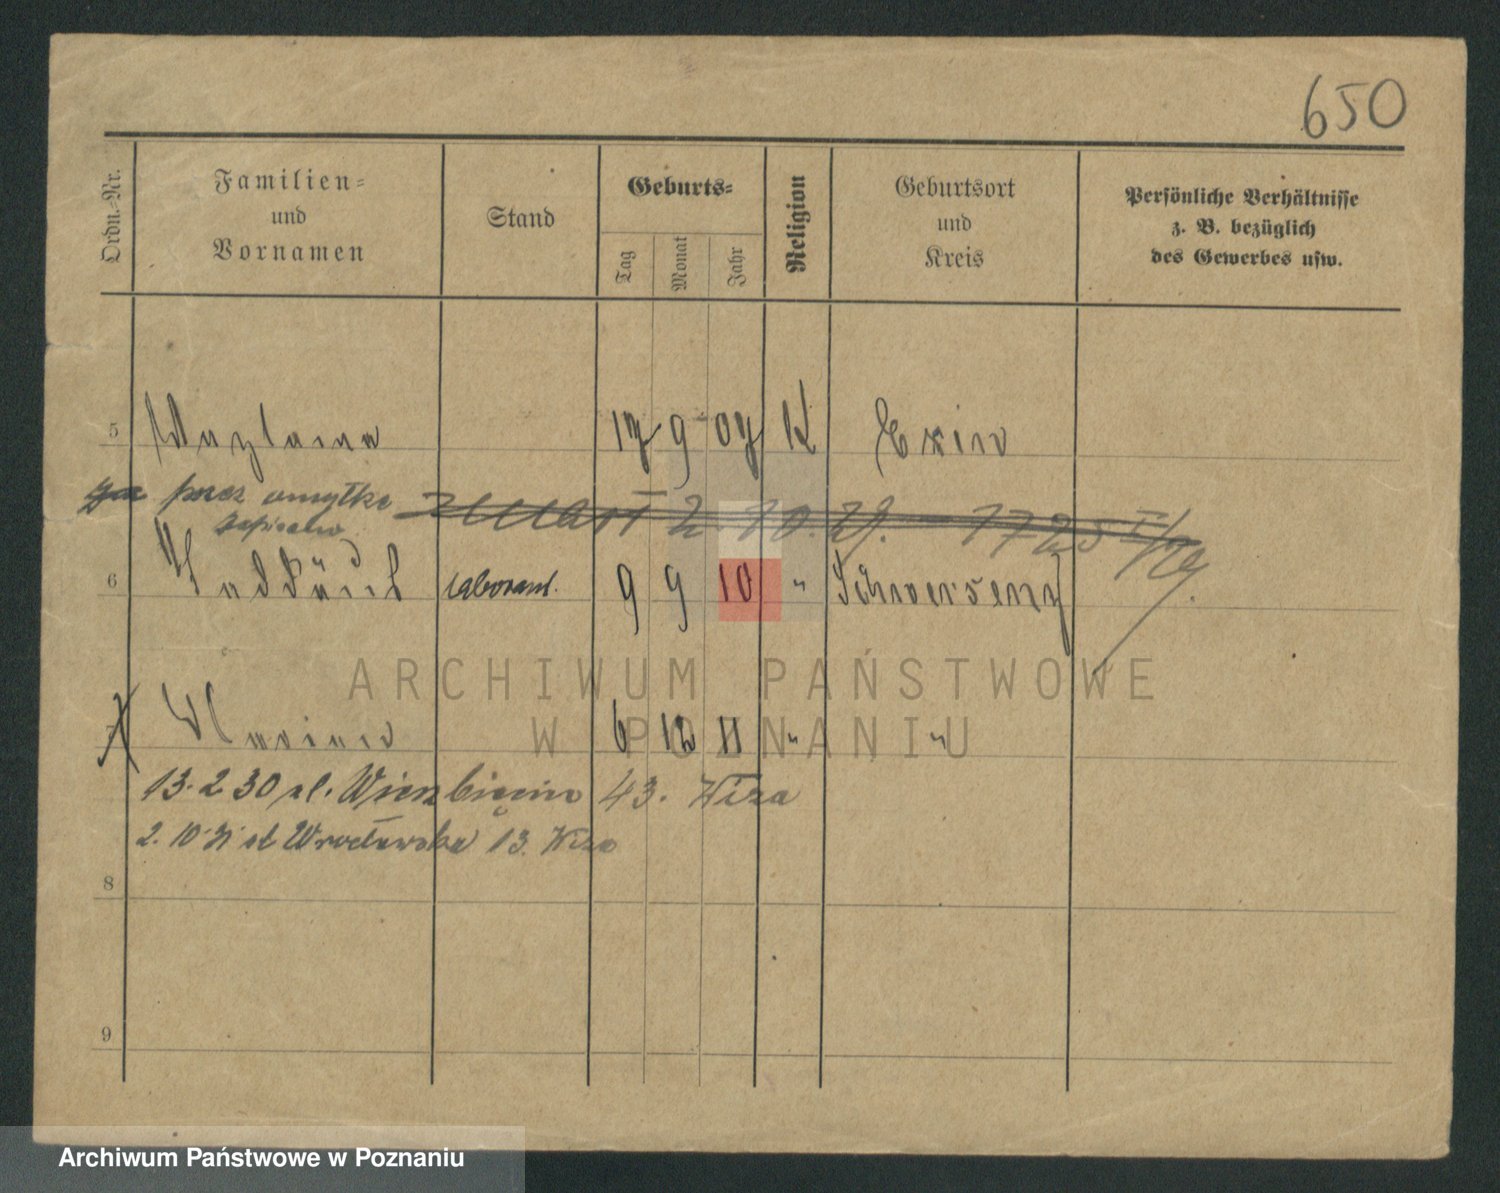 650
Ordn.-Nr.
Familien-
und
Vornamen
Stand
Geburts-
Tag
Monat
Jahr
Religion
Geburtsort
und
Kreis
Persönliche Verhältnisse
z. B. bezüglich
des Gewerbes usw.
5 17 9 07 K Exin
przez omyłkę zmarł 2.10.29. 1725
zapisano
6 Laborant. 9 9 10 " Schwersenz
7 6 12 11 " "
13.2 30 ul. Wierzbięcice 43. Wiza
2. 10 31 ul Wrocławska 13. Wiza
8
9
ARCHIWUM PAŃSTWOWE
W POZNANIU
Archiwum Państwowe w Poznaniu